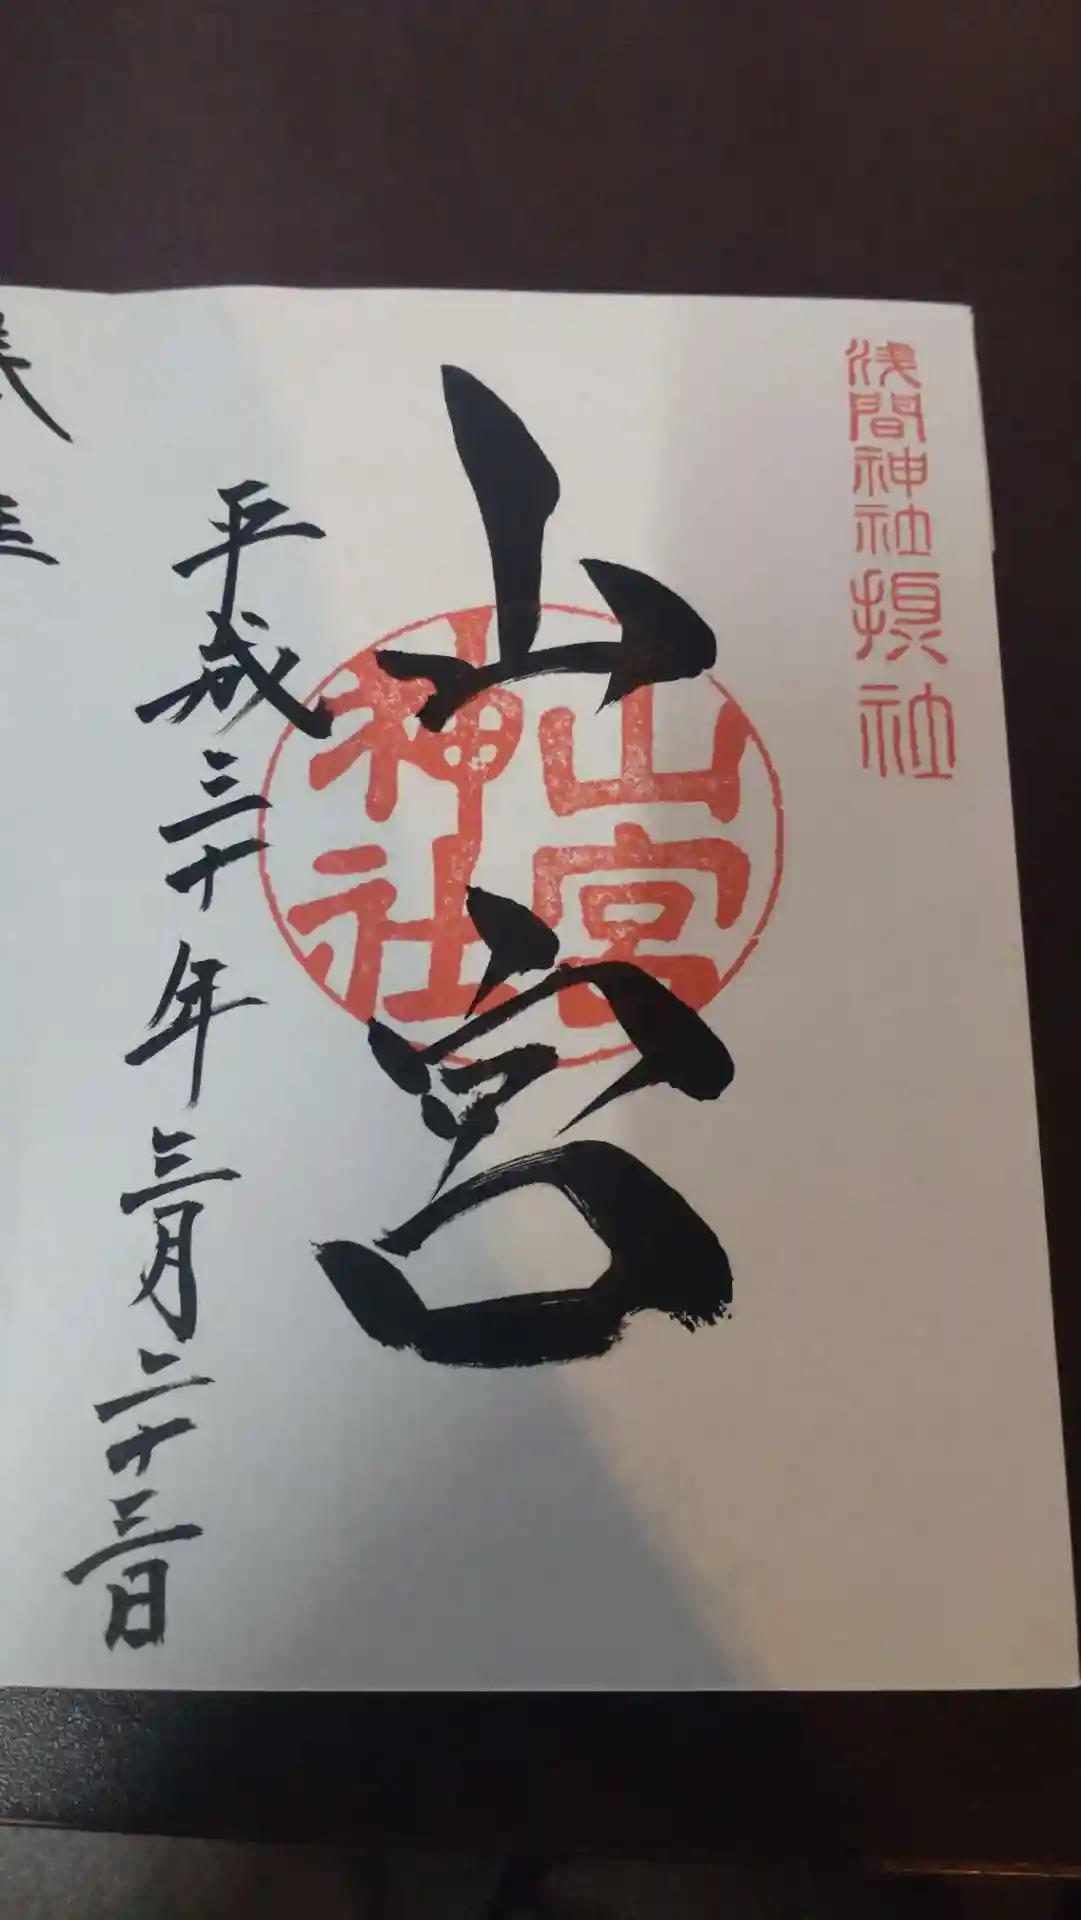 浅間神社摂社
山宮
山宮
神社
平成三十年三月二十三日